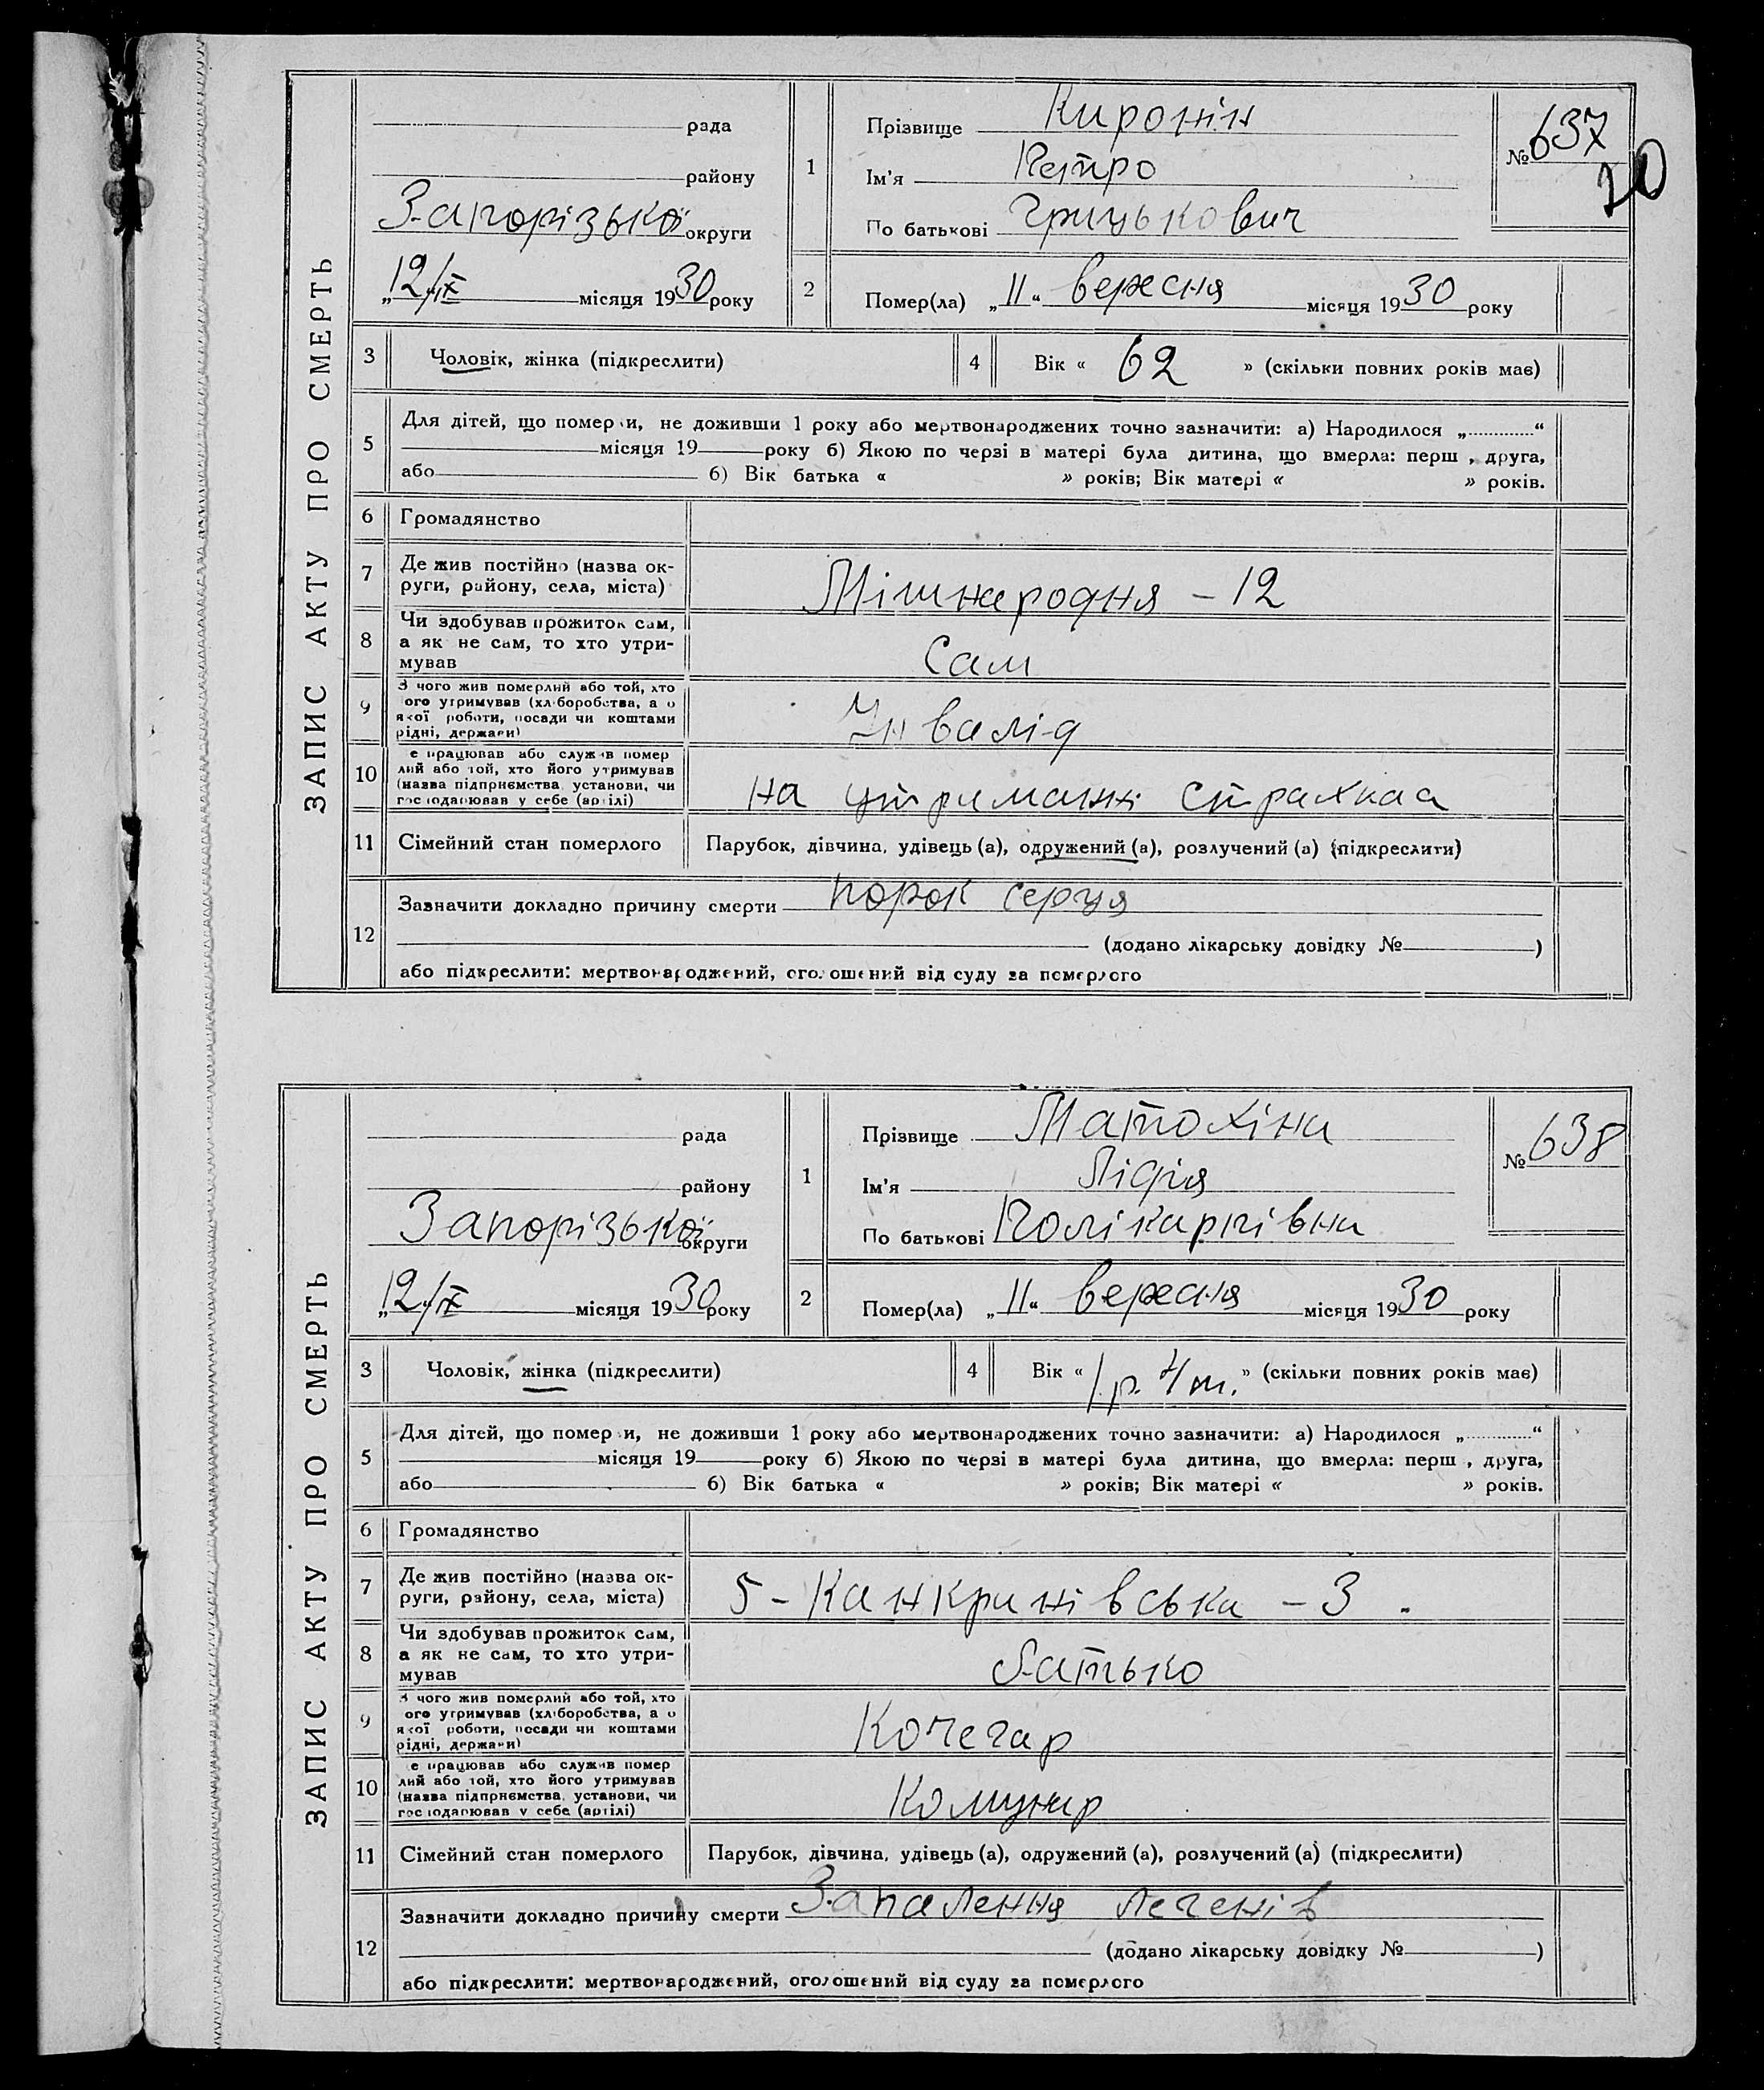 ЗАПИС АКТУ ПРО СМЕРТЬ
рада
району
Запорізької округи
„12/IX місяця 1930 року
1
Прізвище Киронін
Ім'я Петро
По батькові Грицькович
№ 637
20
2
Помер(ла) „11“ вересня місяця 1930 року
3 Чоловік, жінка (підкреслити)
4 Вік « 62 » (скільки повних років має)
5 Для дітей, що помер и, не доживши 1 року або мертвонароджених точно зазначити: а) Народилося „............“
місяця 19 року б) Якою по черзі в матері була дитина, що вмерла: перш , друга,
або б) Вік батька « » років; Вік матері « » років.
6 Громадянство
7 Де жив постійно (назва ок-
руги, району, села, міста)
Міжнародня - 12
8 Чи здобував прожиток сам,
а як не сам, то хто утри-
мував
Сам
9 З чого жив померлий або той, хто
ого утримував (хліборобства, а о
якої роботи, посади чи коштами
рідні, держави)
Інвалід
10 е працював або служив помер
лий або той, хто його утримував
(назва підприємства, установи, чи
господарював у себе (артілі)
на утриманні страхкаса
11 Сімейний стан померлого Парубок, дівчина, удівець (а), одружений (а), розлучений (а) (підкреслити)
12 Зазначити докладно причину смерти порок серця
(додано лікарську довідку № )
або підкреслити: мертвонароджений, оголошений від суду за померлого
ЗАПИС АКТУ ПРО СМЕРТЬ
рада
району
Запорізької округи
„12“/IX місяця 1930 року
1
Прізвище Матохіна
Ім'я Лідія
По батькові Полікарпівна
№ 638
2
Помер(ла) „11“ вересня місяця 1930 року
3 Чоловік, жінка (підкреслити)
4 Вік « 1 р. 4 м. » (скільки повних років має)
5 Для дітей, що помер и, не доживши 1 року або мертвонароджених точно зазначити: а) Народилося „............“
місяця 19 року б) Якою по черзі в матері була дитина, що вмерла: перш , друга,
або б) Вік батька « » років; Вік матері « » років.
6 Громадянство
7 Де жив постійно (назва ок-
руги, району, села, міста)
5 - Канкринівська - 3.
8 Чи здобував прожиток сам,
а як не сам, то хто утри-
мував
батько
9 З чого жив померлий або той, хто
ого утримував (хліборобства, а о
якої роботи, посади чи коштами
рідні, держави)
Кочегар
10 е працював або служив помер
лий або той, хто його утримував
(назва підприємства, установи, чи
господарював у себе (артілі)
Комунар
11 Сімейний стан померлого Парубок, дівчина, удівець (а), одружений (а), розлучений (а) (підкреслити)
12 Зазначити докладно причину смерти Запалення легенів
(додано лікарську довідку № )
або підкреслити: мертвонароджений, оголошений від суду за померлого